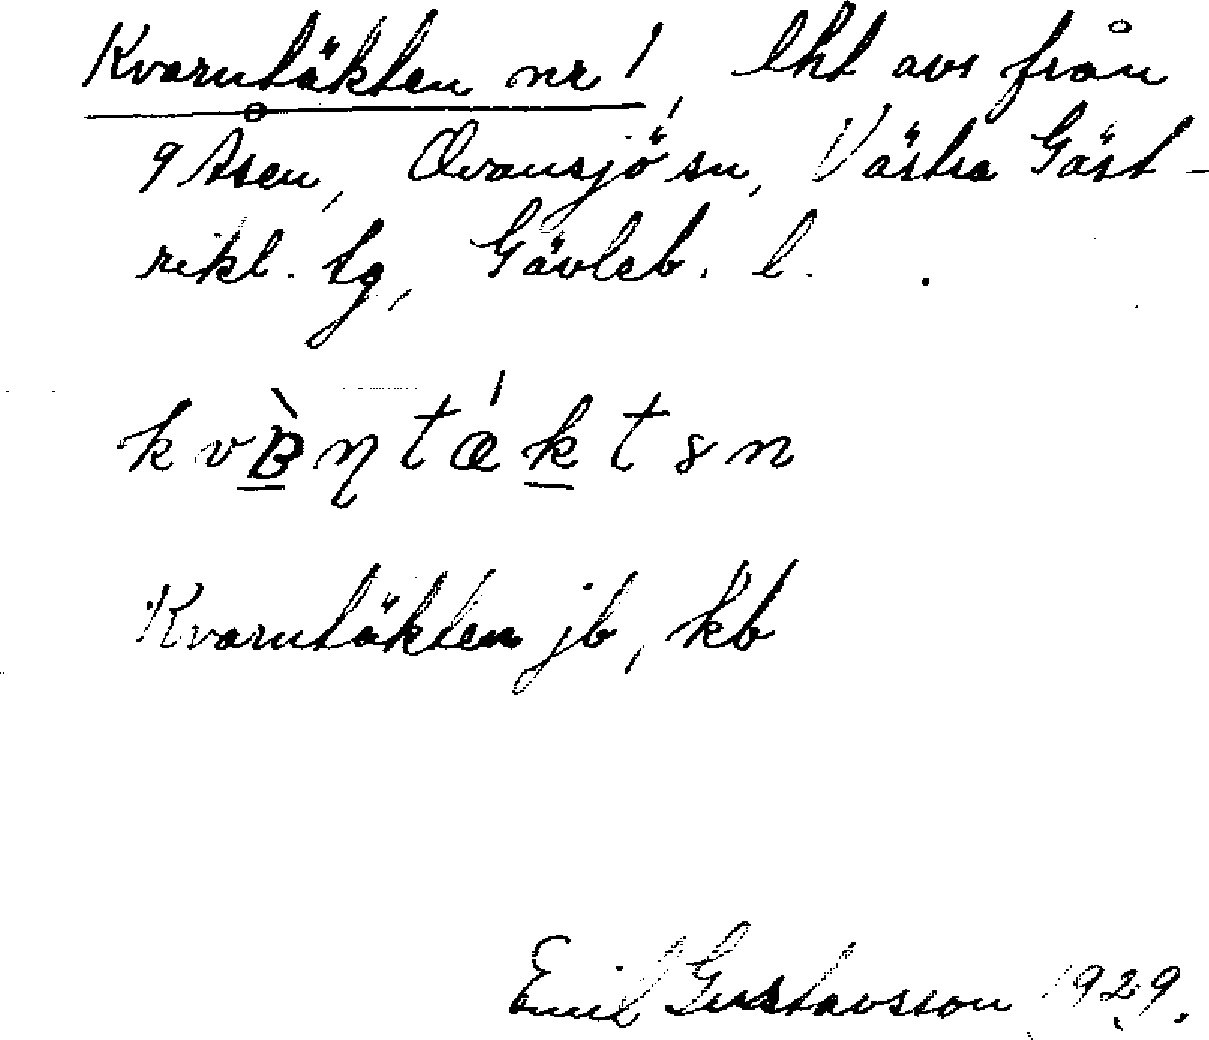 Kvarntäkten nr 1, lht avs från
9 Åsen, Ovansjö sn, Västra Gäst-
rikl. tg, Gävleb. l.
kvàn̥tǽktən
Kvarntäkten jb, kb
Emil Gustavsson 1929.